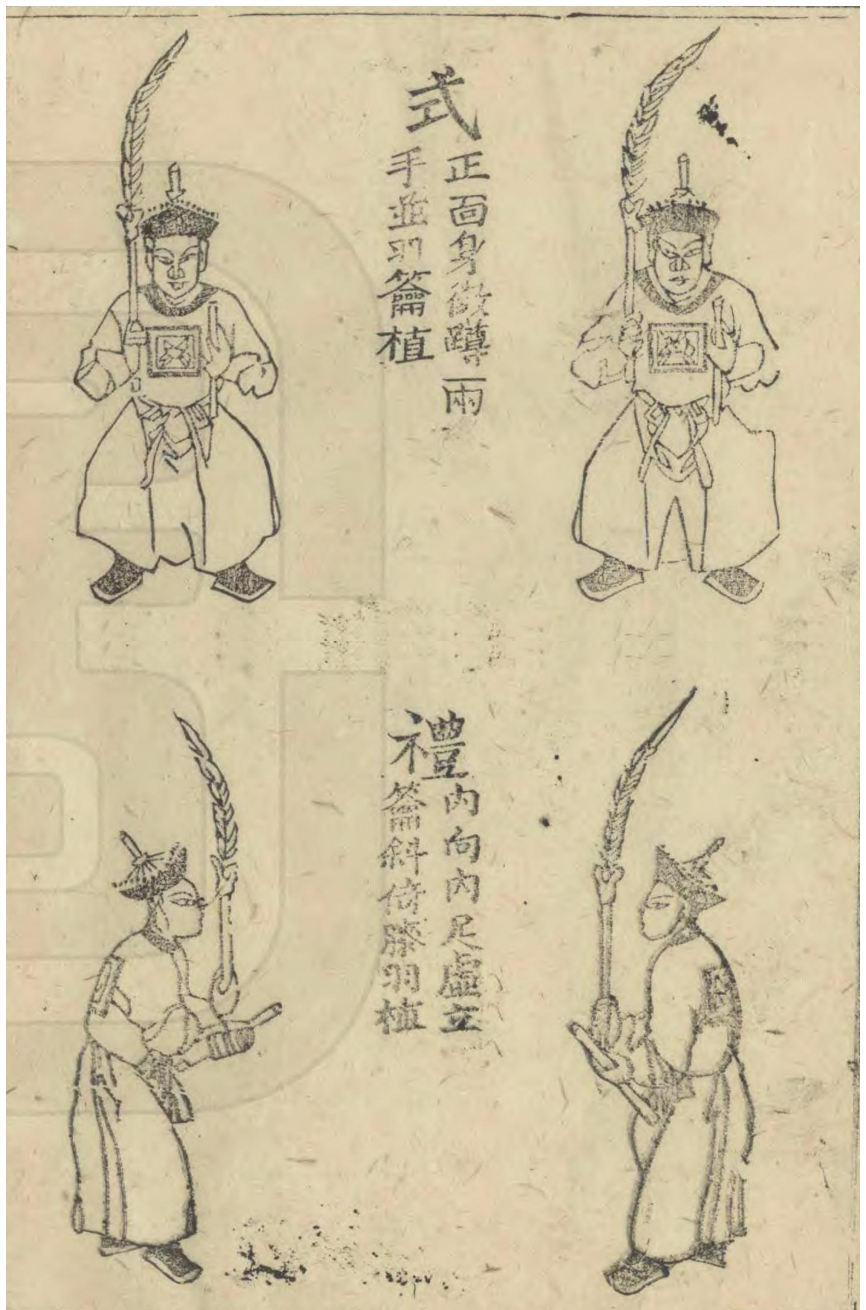 式
正面身微蹲兩
手並羽籥植
禮
內向內足虛立
籥斜倚膝羽植